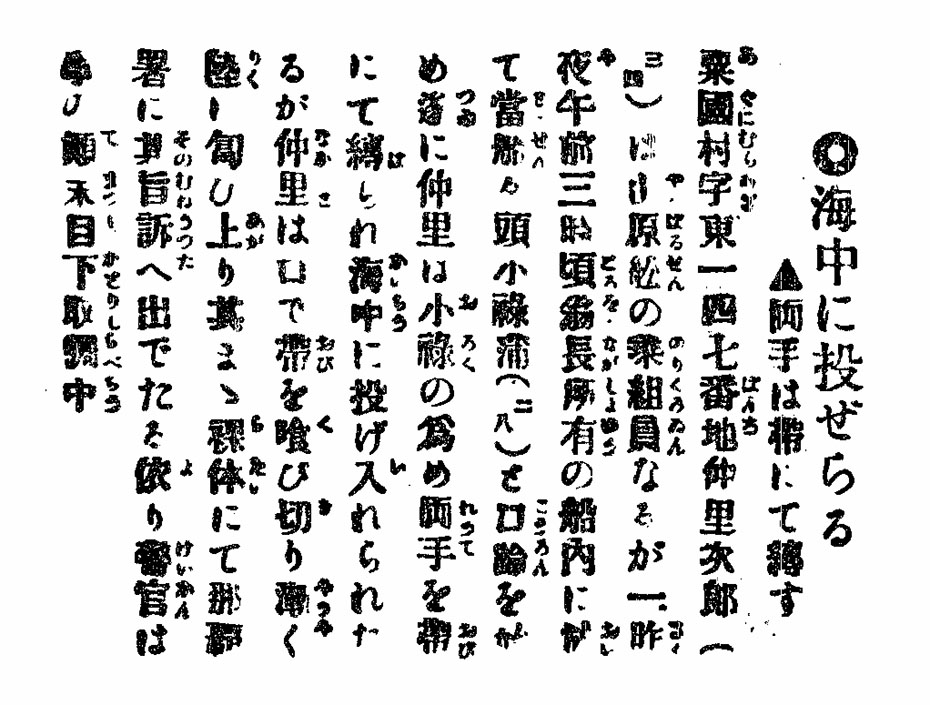 ◎海中に投ぜらる
▲両手は帯にて縛す
粟國村字東一四七番地仲里次郎(
三四)は 原舩の乗組員なるが一昨
夜午前三時頃 長所有の船内に
て當 頭小祿蒲(二八)と口論を
め遂に仲里は小祿の爲め両手を帯
にて縛しれ海中に投げ入れられた
るが仲里は口で帯を喰ひ切り漸く
陸に匐ひ上り其まゝ裸体にて那覇
署に其旨訴へ出でたる依り警官は
顛末目下取調中